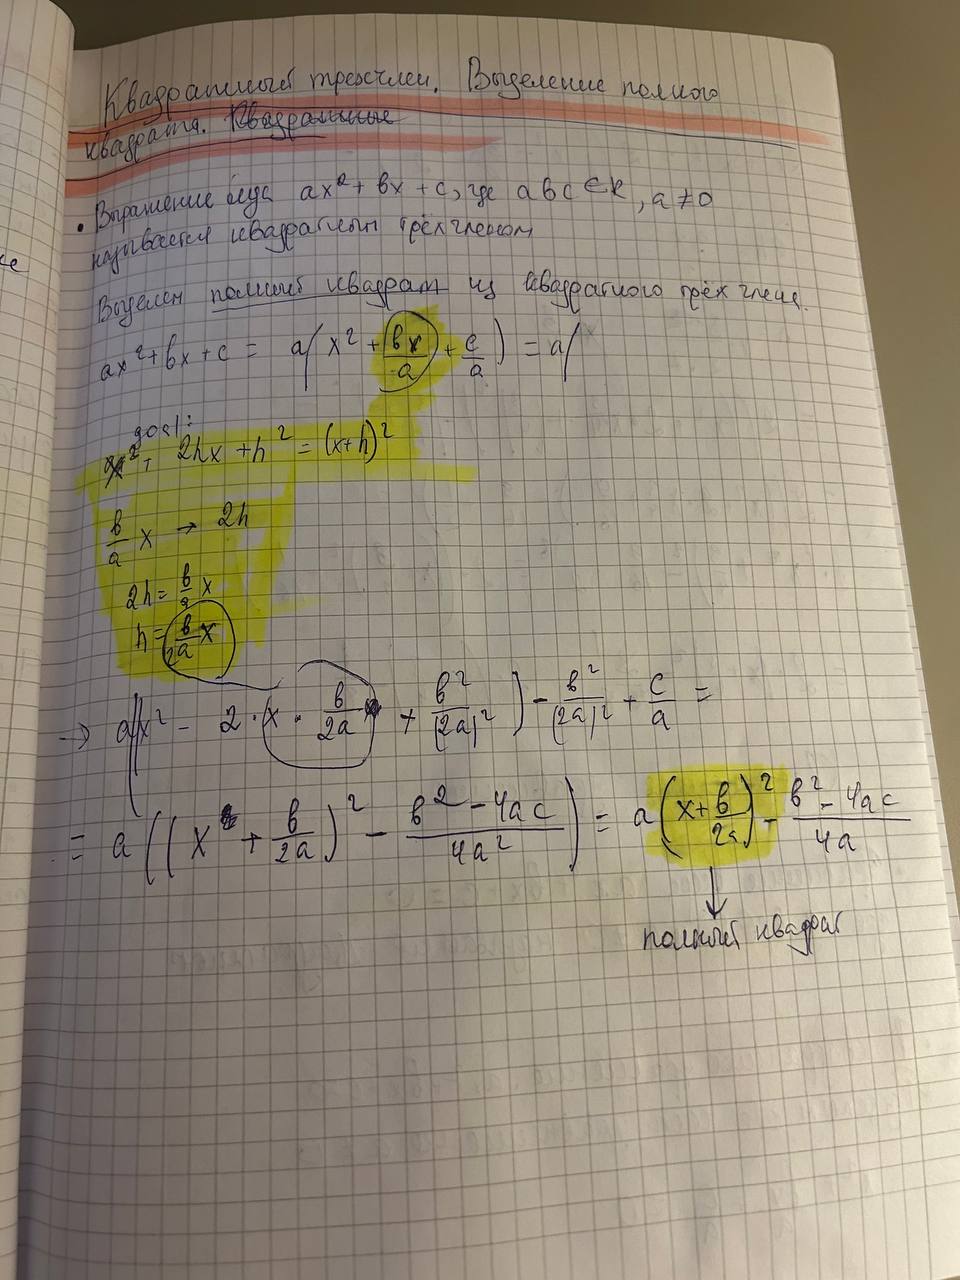 Квадратный трехчлен. Выделение полного
квадрата. Квадратные
• Выражение вида ax² + bx + c, где a b c ∈ R, a ≠ 0
называется квадратным трёхчленом
Выделен полный квадрат из квадратного трёхчлена.
ax² + bx + c = a( x² + bx/a + c/a ) = a(
goal:
x² + 2hx + h² = (x+h)²
b/a x → 2h
2h = b/a x
h = b/2a x
→ a((x² - 2 · x · b/2a + b²/(2a)² ) - b²/(2a)² + c/a =
= a((x + b/2a)² - b² - 4ac/4a²) = a(x + b/2a)² - b² - 4ac/4a
полный квадрат